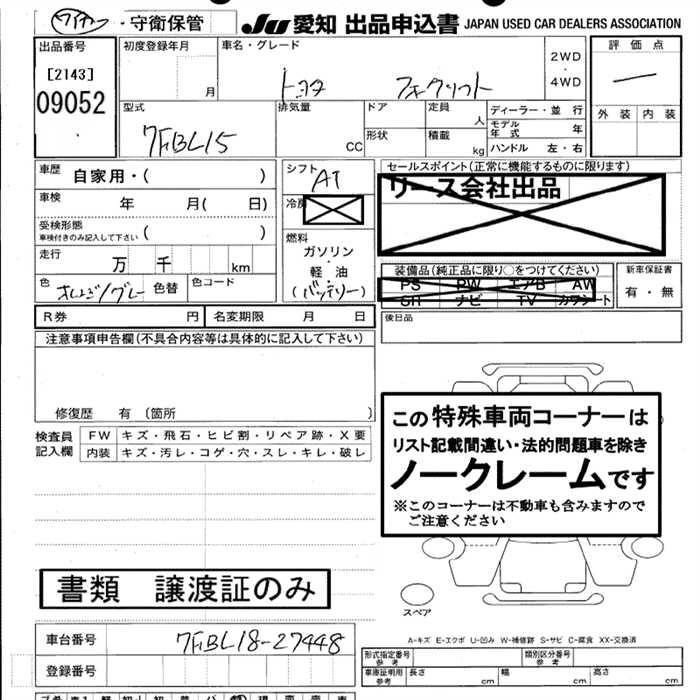 守衛保管
JU 愛知 出品申込書 JAPAN USED CAR DEALERS ASSOCIATION
出品番号
[2143]
09052
初度登録年月
月
車名・グレード
トヨタ フォークリフト
2WD
・
4WD
評価点
―
外装 内装
型式
7FBL15
排気量
CC
ドア
形状
定員
人
積載
kg
ディーラー・並行
モデル年式 年
ハンドル 左・右
車歴
自家用・( )
車検 年 月( 日)
受検形態
車検付きのみ記入して下さい ( )
走行 万 千 km
色 オレンジ/グレー 色替 色コード
シフト
AT
冷房
燃料
ガソリン
・
軽油
(バッテリー)
セールスポイント(正常に機能するものに限ります)
リース会社出品
装備品(純品に限り○をつけてください)
PS PW エアB AW
SR ナビ TV カワシート
新車保証書
有・無
R券 円 名変期限 月 日
後日品
注意事項申告欄(不具合内容等は具体的に記入して下さい)
修復歴 有 〔箇所 〕
検査員
記入欄
FW キズ・飛石・ヒビ割・リペア跡・X要
内装 キズ・汚レ・コゲ・穴・スレ・キレ・破レ
この特殊車両コーナーは
リスト記載間違い・法的問題車を除き
ノークレームです
※このコーナーは不動車も含みますので
ご注意ください
書類 譲渡証のみ
スペア
A-キズ E-エクボ U-凹み W-補修跡 S-サビ C-腐食 XX-交換済
車台番号 7FBL18-27448
登録番号
形式指定番号
参考
類別区分番号
参考
車庫証明用
参考
長さ cm 幅 cm 高さ cm